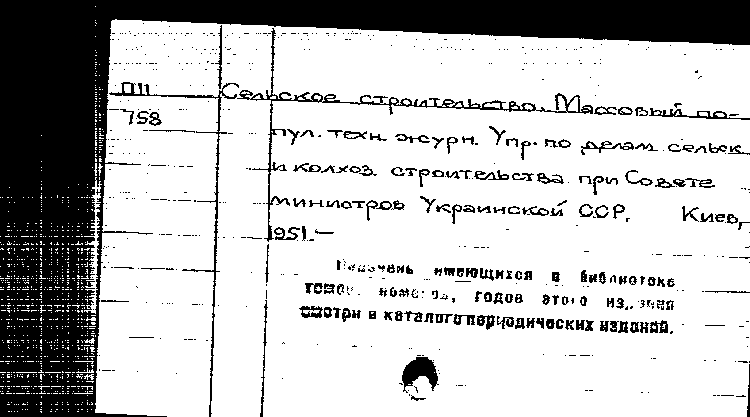 П11 Сельское строительство. Массовый по-
758 пул. техн. журн. Упр. по делам сельск
и колхоз. строительства при Совете
министров Украинской ССР. Киев,
1951.—
Перечень имеющихся в библиотеке
томов, номеров, годов этого издания
смотри в каталоге периодических изданий.